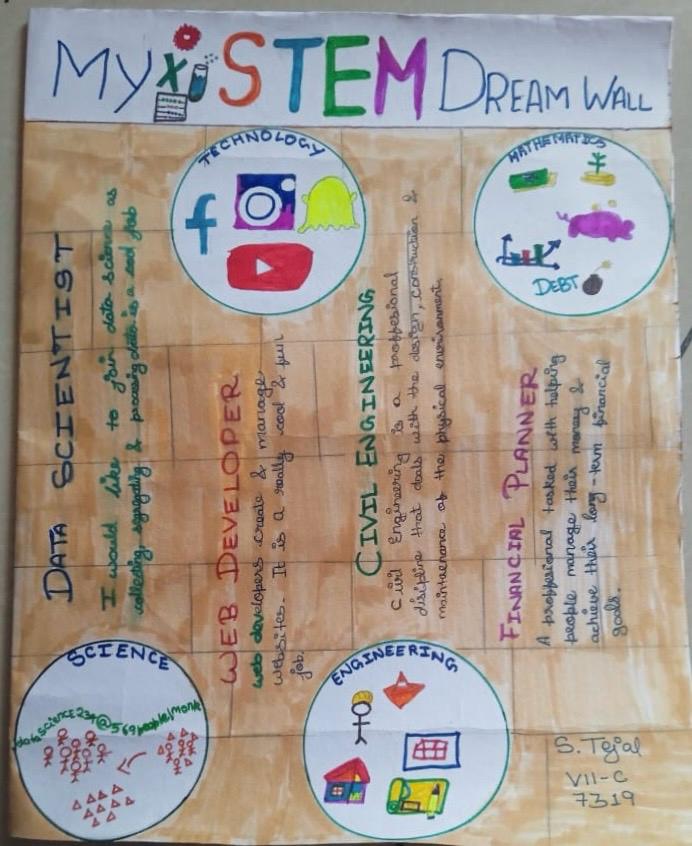 MY STEM DREAM WALL
TECHNOLOGY
f
MATHEMATICS
DEBT
DATA SCIENTIST
I would like to join data science as
collecting, segregating & processing data is a cool job
WEB DEVELOPER
web developers create & manage
websites. It is a really cool & fun
job.
CIVIL ENGINEERING
Civil Engineering is a proffesional
discipline that deals with the design, construction &
maintaenance of the physical environment.
FINANCIAL PLANNER
A proffesional tasked with helping
people manage their money &
achieve their long-term financial
goals.
SCIENCE
ENGINEERING
S. Tejal
VII-C
7319